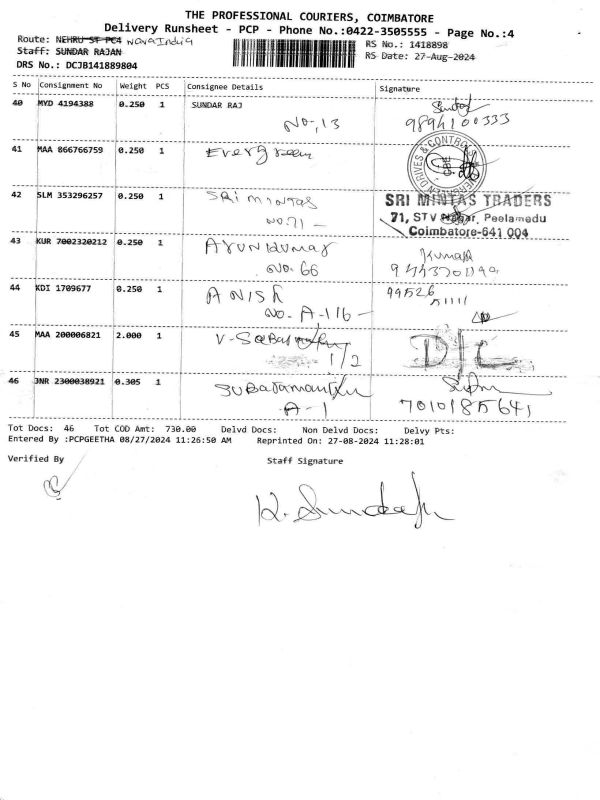 THE PROFESSIONAL COURIERS, COIMBATORE
Delivery Runsheet - PCP - Phone No.:0422-3505555 - Page No.:4
Route: NEHRU ST PC4 NavaIndia
RS No.: 1418898
Staff: SUNDAR RAJAN
RS Date: 27-Aug-2024
DRS No.: DCJB141889804
S No Consignment No Weight PCS Consignee Details Signature
40 MYD 4194388 0.250 1 SUNDAR RAJ
No, 13 9894100333
41 MAA 866766759 0.250 1 Evergreen
42 SLM 353296257 0.250 1 SRI MINTAS SRI MINTAS TRADERS
NO. 71 - 71, STV Nagar, Peelamedu
Coimbatore-641 004
43 KUR 7002320212 0.250 1 Arunkumar Kumar
No. 66
44 KDI 1709677 0.250 1 ANISH 99526
NO. A-116 - 51111
45 MAA 200006821 2.000 1 D/C
1/2
46 JNR 2300038921 0.305 1
A-1 7010185641
Tot Docs: 46 Tot COD Amt: 730.00 Delvd Docs: Non Delvd Docs: Delvy Pts:
Entered By :PCPGEETHA 08/27/2024 11:26:50 AM Reprinted On: 27-08-2024 11:28:01
Verified By Staff Signature